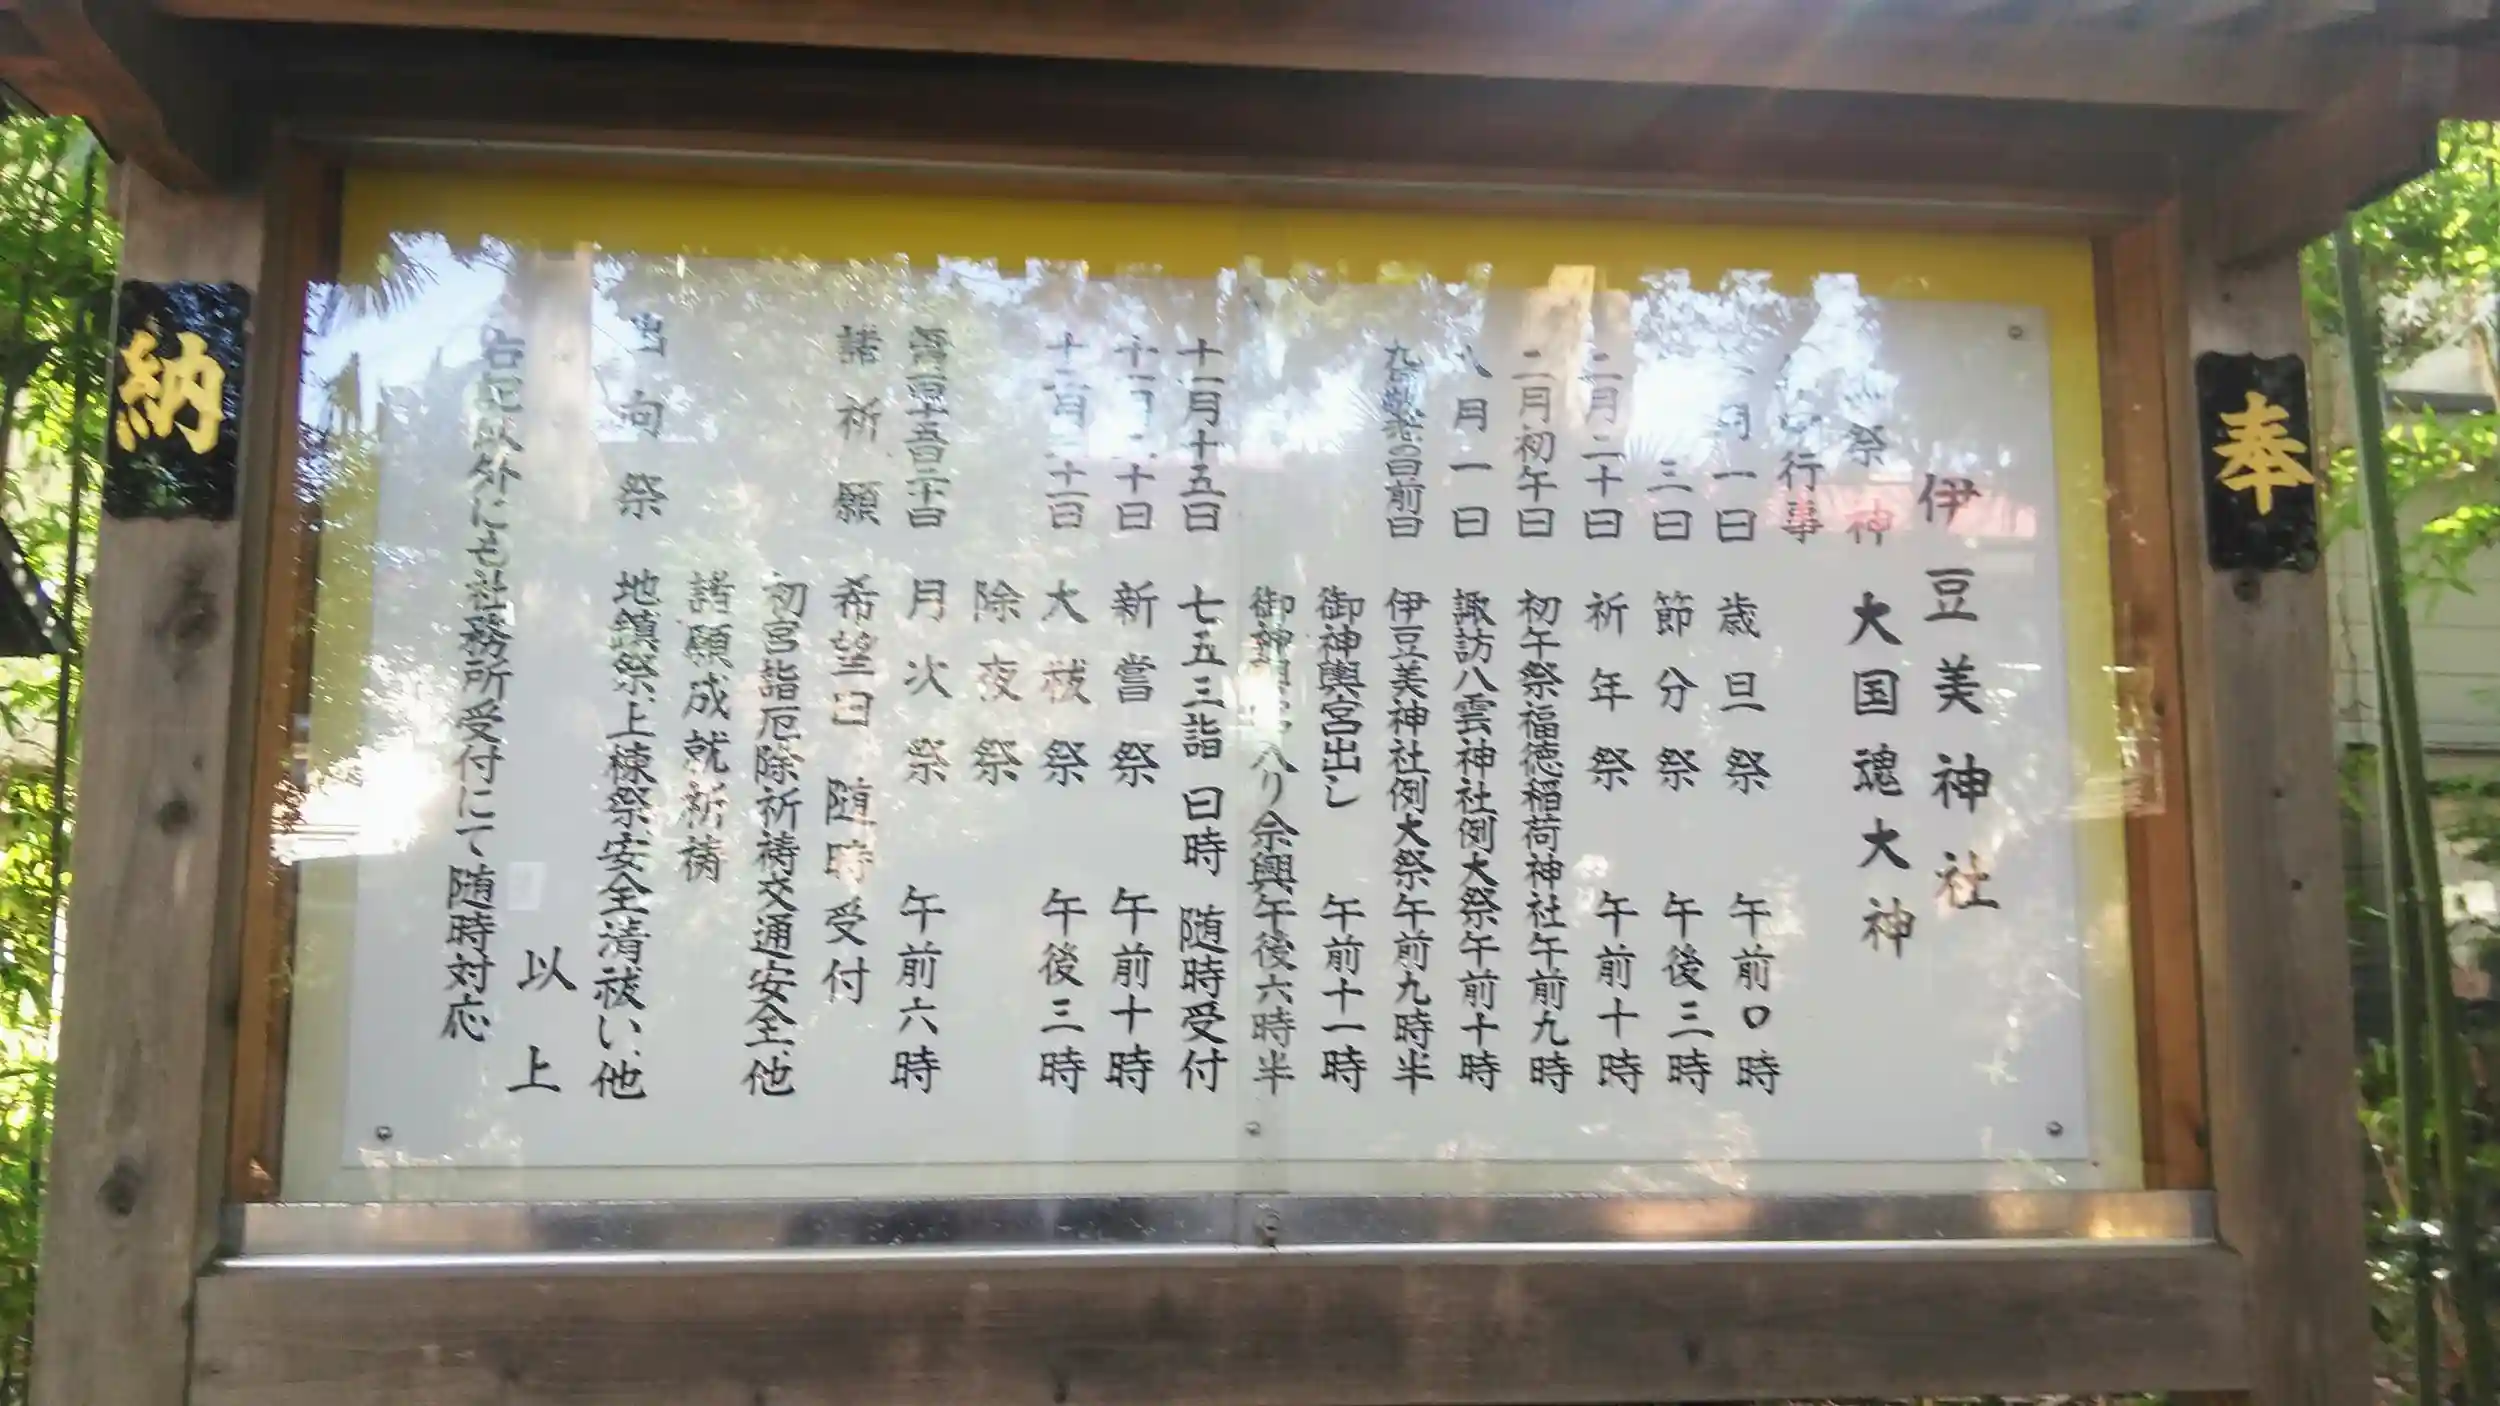 奉
納
伊豆美神社
祭神 大国魂大神
行事
月一日 歳旦祭 午前0時
三日 節分祭 午後三時
二月二十日 祈年祭 午前十時
二月初午日 初午祭福徳稲荷神社午前九時
八月一日 諏訪八雲神社例大祭午前十時
九月 日前日 伊豆美神社例大祭午前九時半
御神輿宮出し 午前十一時
御神輿 入り余興午後六時半
十一月十五日 七五三詣 日時 随時受付
十一月二十日 新嘗祭 午前十時
十二月三十一日 大祓祭 午後三時
除夜祭
毎月一日十五日二十日 月次祭 午前六時
諸祈願 希望日 随時受付
初宮詣厄除祈祷交通安全、他
諸願成就祈祷
出向祭 地鎮祭、上棟祭、安全清祓い、他
以上
右記以外にも社務所受付にて随時対応